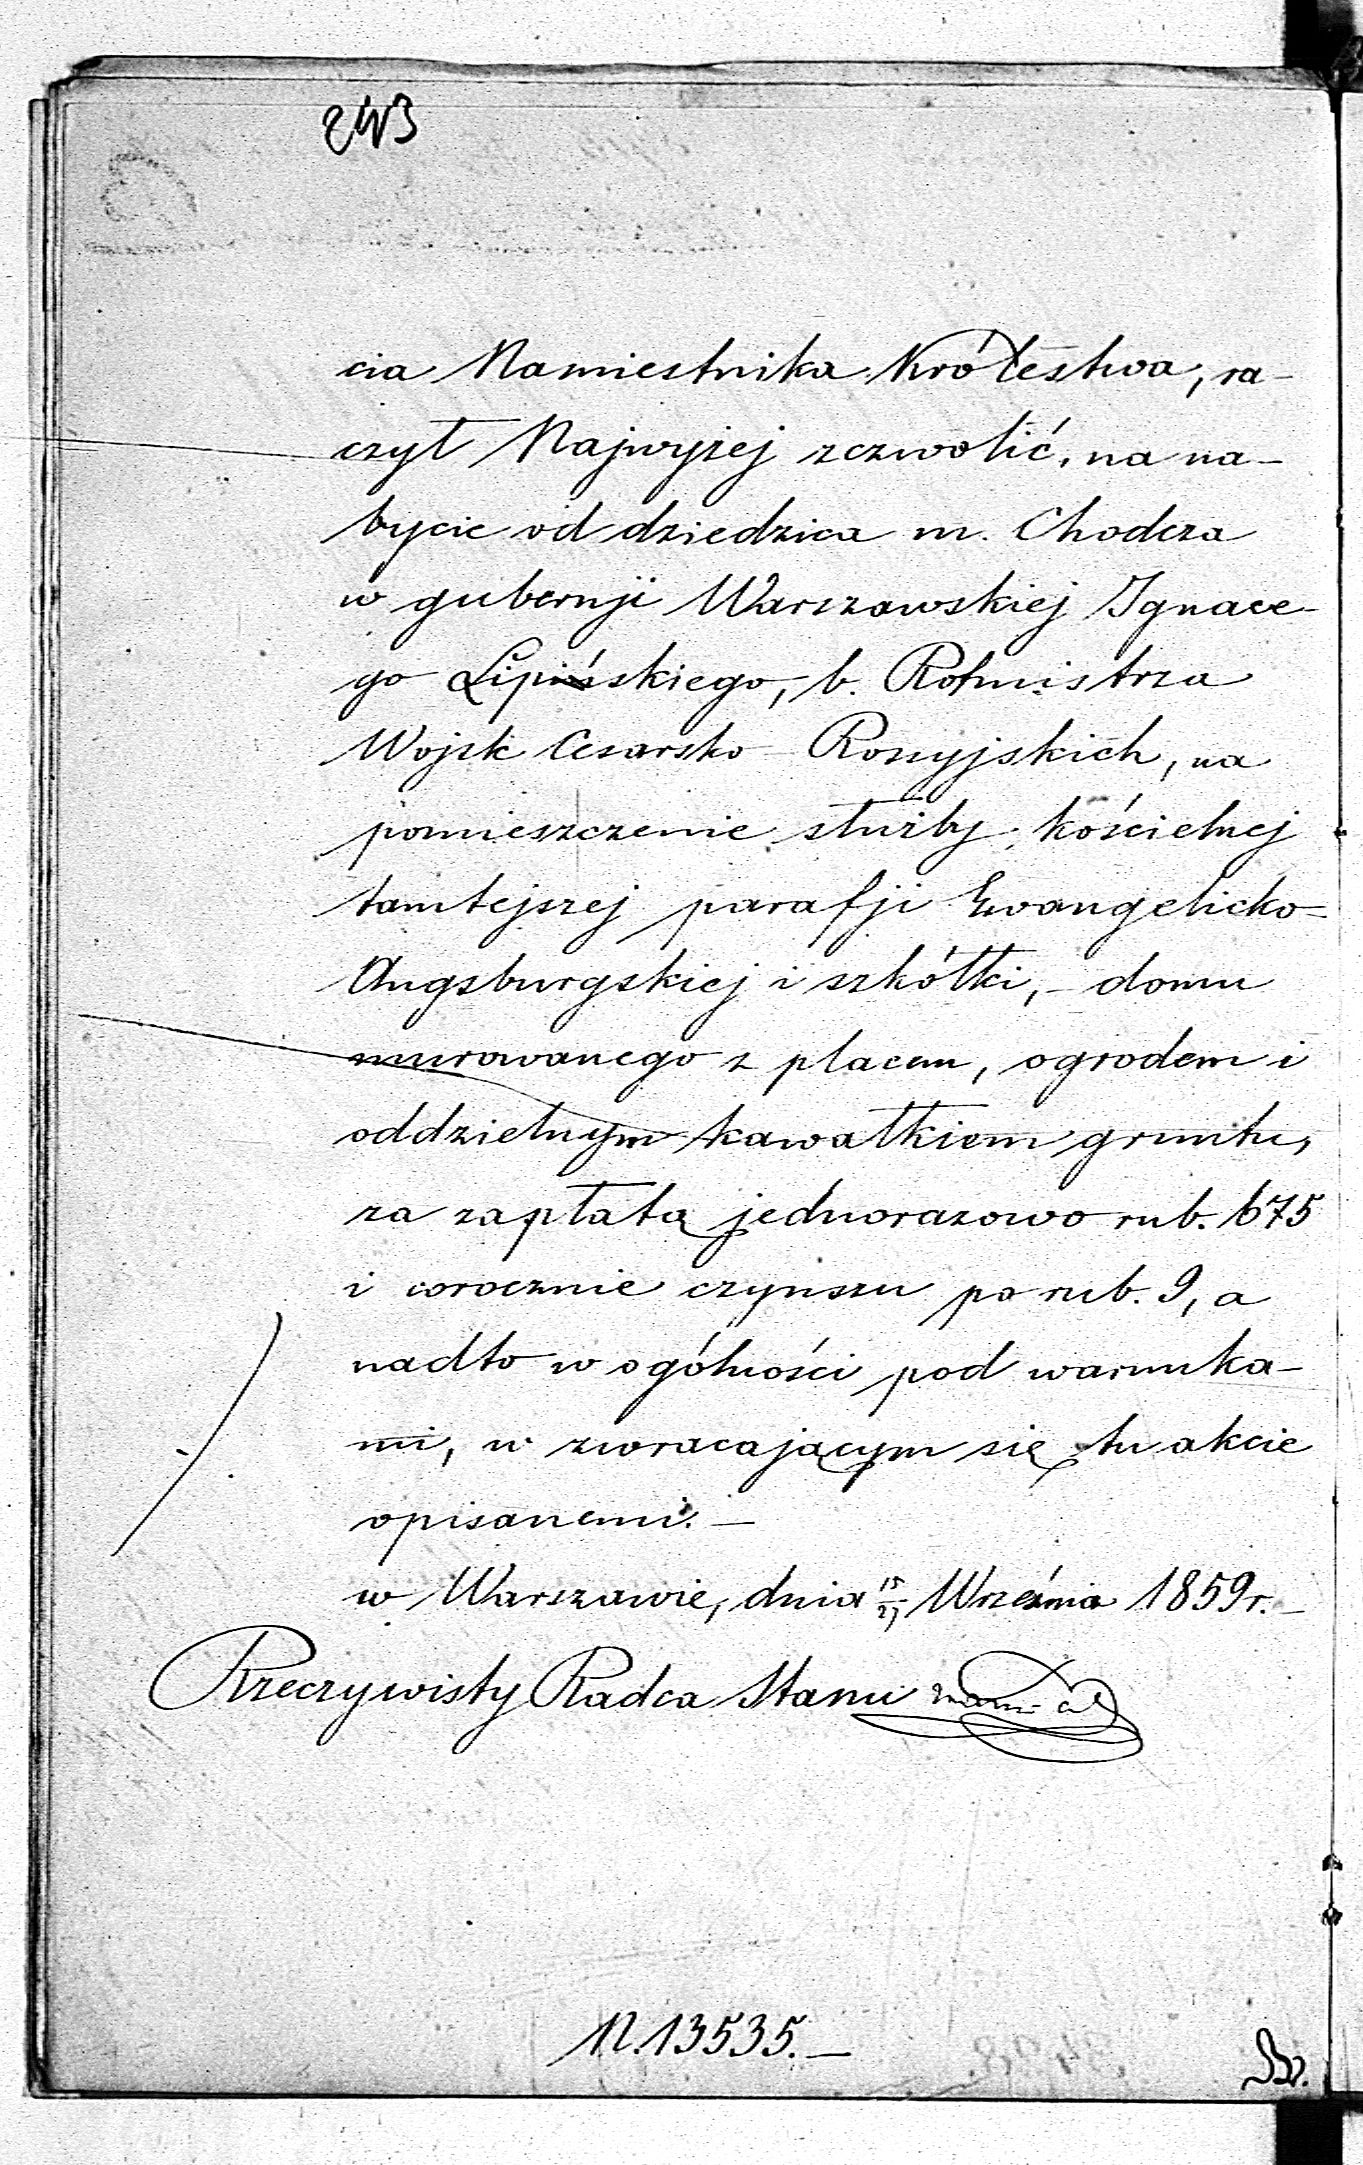 243
cia Namiestnika Królestwa, ra-
czył Najwyżej zezwolić, na na-
bycie od dziedzica m. Chodcza
w gubernji Warszawskiej Ignace-
go Lipińskiego, b. Rotmistrza
Wojsk Cesarsko Rossyjskich, na
pomieszczenie służby kościelnej
tamtejszej parafji Ewangelicko-
Augsburgskiej i szkółki, - domu
murowanego z placem, ogrodem i
oddzielnym kawałkiem gruntu,
za zapłatą jednorazowo rub. 675
i corocznie czynszu po rub. 9, a
nadto w ogólności pod warunka-
mi, w zwracającym się tu akcie
opisanemi. -
w Warszawie, dnia 15/27 Września 1859 r. -
Rzeczywisty Radca Stanu
N. 13535. -